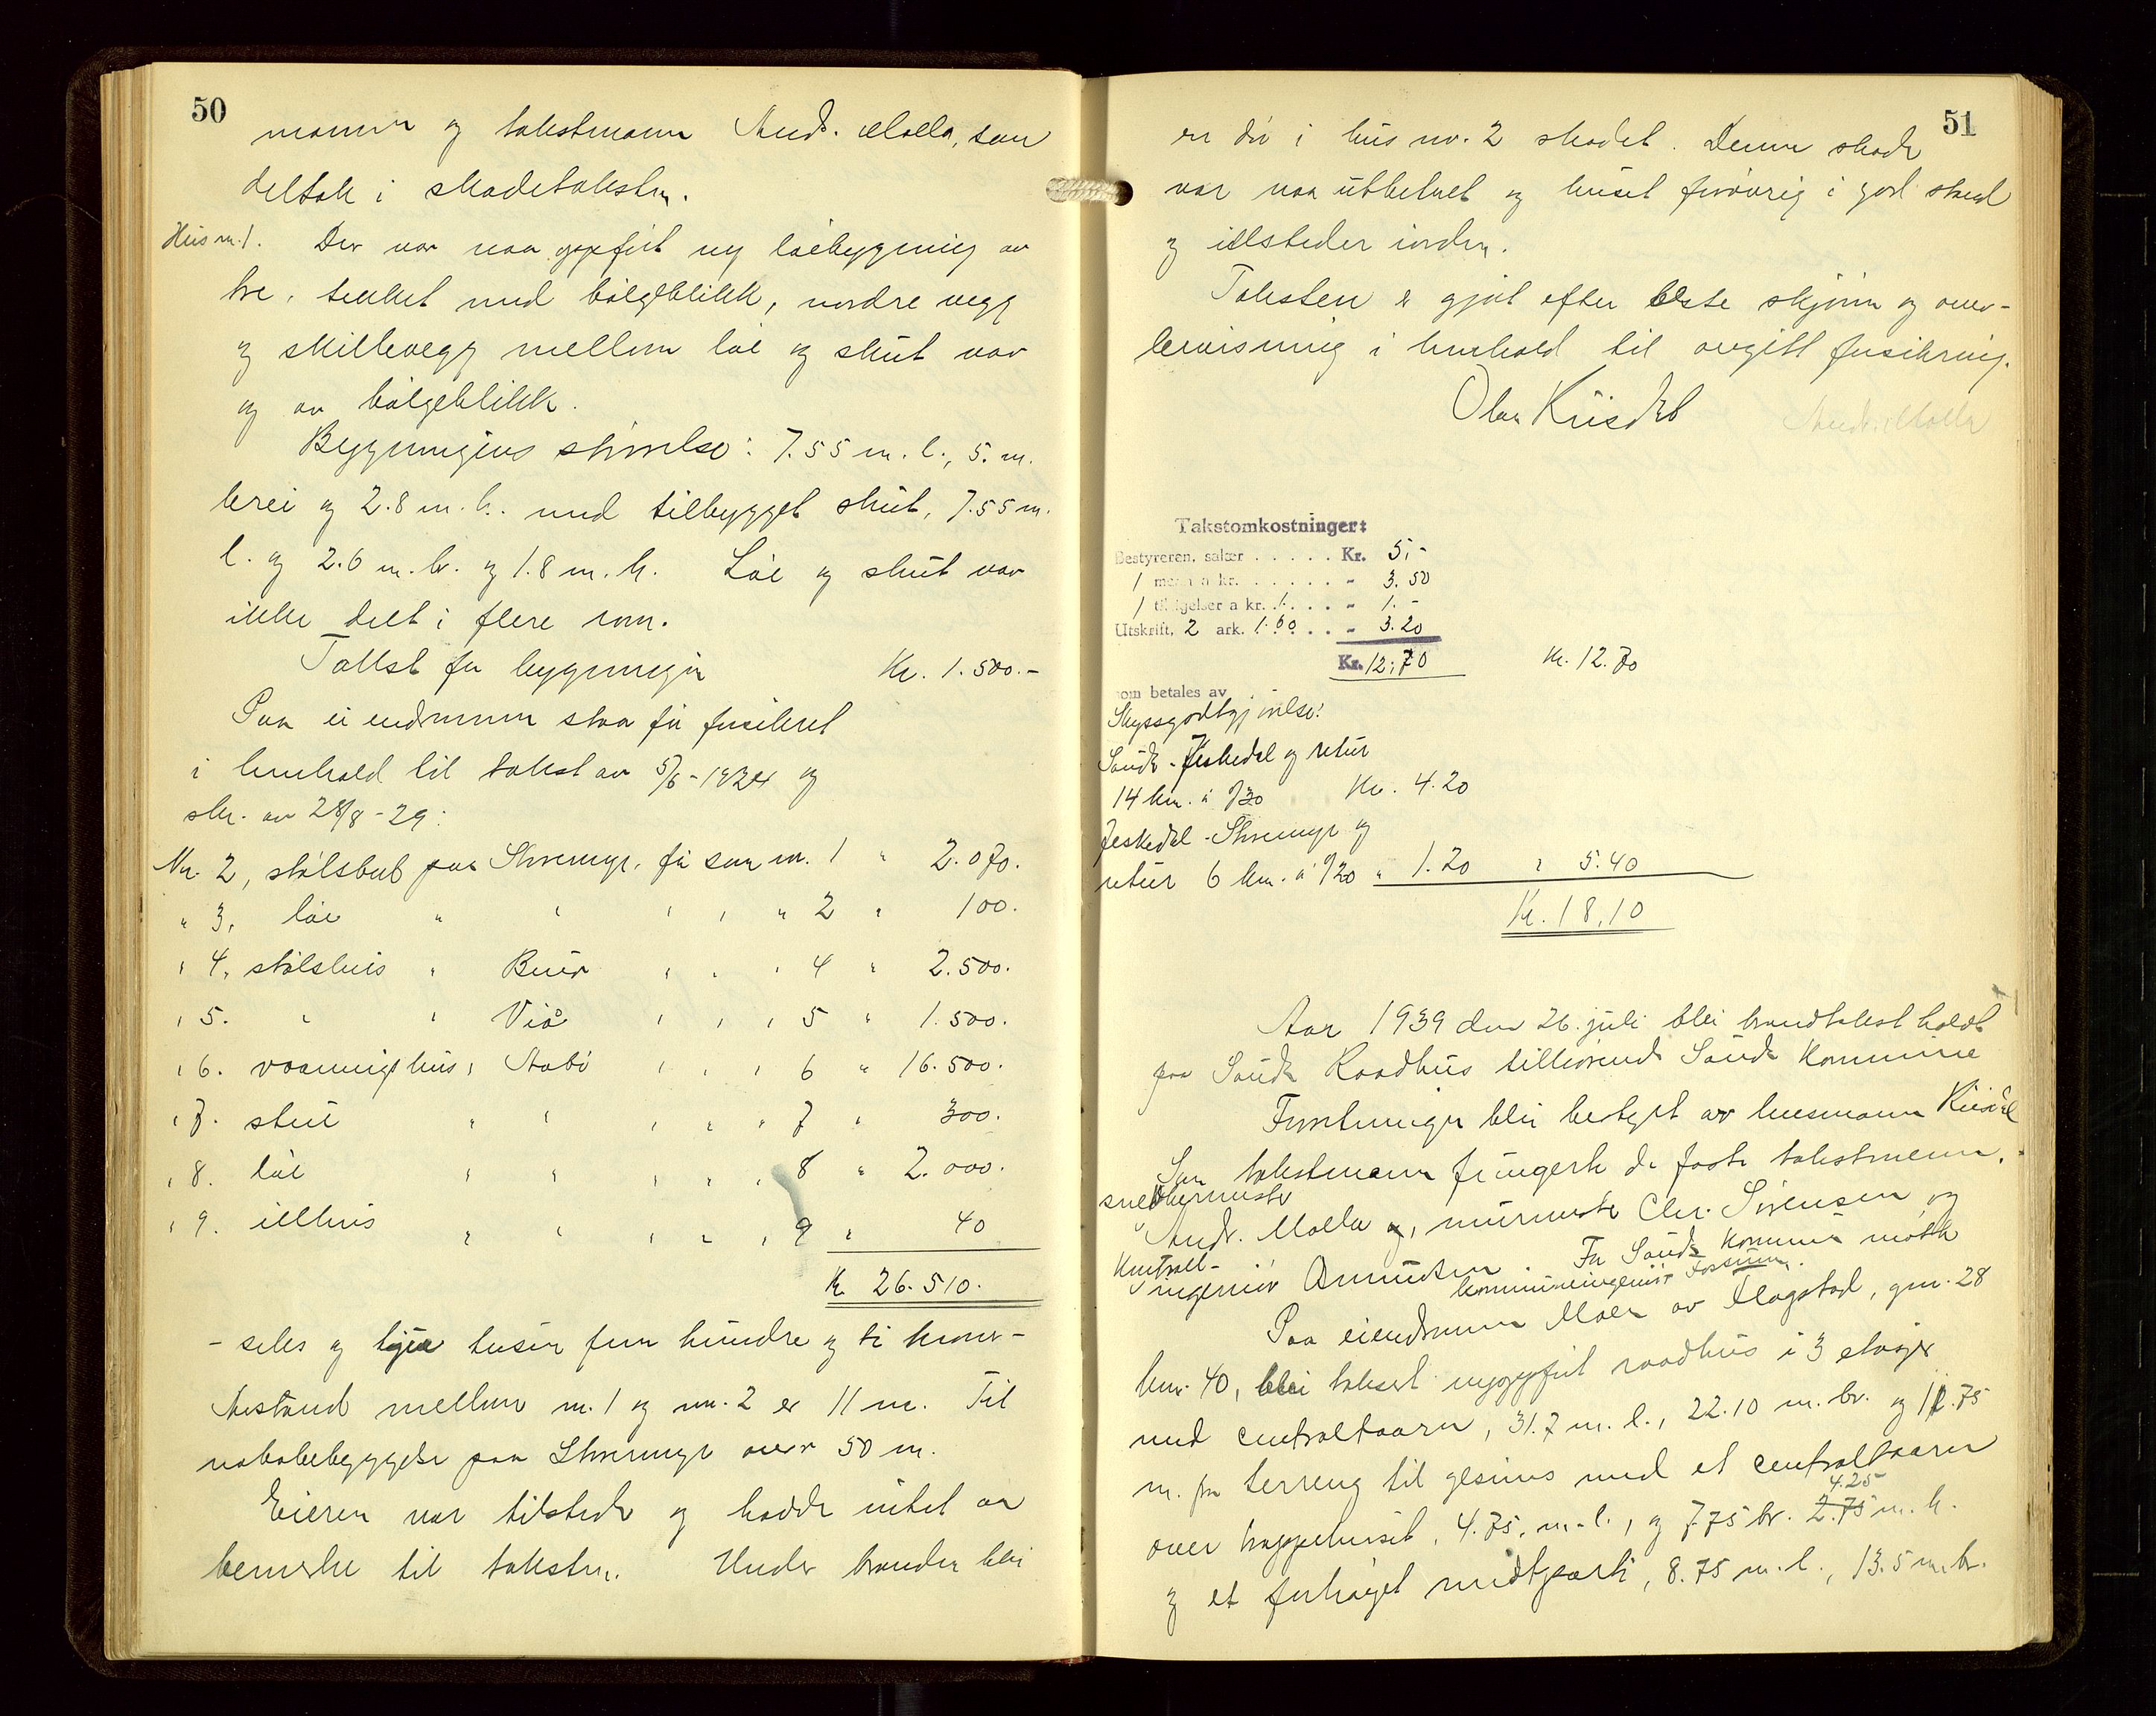 50
mannen og takstmann And. Molla, som
deltok i skadetaksten.
Hus nr. 1. Der var naa opført ny løebygning av
tre, tekket med bølgeblikk, nordre vegg
og skillevegg mellem løe og skut var
og av bølgeblikk.
Bygningens størrelse: 7.55 m. l., 5. m.
brei og 2.8 m. h. med tilbygget skut, 7.55 m.
l. og 2.6 m. br. og 1.8 m. h. Løe og skut var
ikke delt i flere rom.
Takst for bygningen Kr. 1.500.-
Paa eiendommen staar før forsikret
i henhold til takst av 5/6-1924 og
skr. av 28/8-29:
Nr. 2, stølsbut paa Storemyr, før som nr. 1 " 2.070.
" 3, løe " " " " " 2 " 100.
" 4, stølshus " Buer " " " 4 " 2.500.
" 5. " " Viå " " " 5 " 1.500.
" 6. vaaningshus " Aabø " " " 6 " 16.500.
" 7. skut " " " " " 7 " 300.
" 8. løe " " " " " 8 " 2.000.
" 9. ildhus " " " " " 9 " 40
Kr. 26.510.
- seks og tjue tusen fem hundre og ti kroner -
Avstand mellem nr. 1 og nr. 2 er 11 m. Til
nabobebyggelse paa Storemyr over 50 m.
Eieren var tilstede og hadde intet aa
bemerke til taksten. Under branden blei
51
en dør i hus nr. 2 skadet. Denne skade
var naa utbetret og huset forøvrig i god stand
og ildsteder iorden.
Taksten er gjort efter beste skjønn og over-
bevisning i henhold til avgitt forsikring.
Olav Kiisdal And. Molla
Takstomkostninger:
Bestyreren, salær . . . . . Kr. 5,-
1 menn a kr. . . . . . . " 3.50
1 tilsigelser a kr. 1. . . . " 1.-
Utskrift, 2 ark. 1.60 . . " 3.20
Kr. 12,70 Kr. 12.70
som betales av
Skyssgodtgjørelse:
Sauda - Fiskedal og retur
14 km. à 0/30 Kr. 4.20
Fiskedal - Storemyr og
retur 6 km. à 0/20 " 1.20 " 5.40
Kr. 18,10
Aar 1939 den 26. juli blei brandtakst holdt
paa Sauda Raadhus tilhørende Sauda Kommune
Forretningen blei bestyrt av lensmann Kiisdal
Som takstmenn fungerte de faste takstmenn,
snekkermester
And. Molla og, murmester Chr. Sørensen og
Kontroll-
ingeniør Amundsen. For Sauda kommune møtte
kommuneingeniør Fossum.
Paa eiendommen Moen av Fløgstad, gnr. 28
bnr. 40, blei takset nyoppført raadhus i 3 etasjer
med centraltaarn, 31.7 m. l., 22.10 m. br. og 12.75
m. fra terreng til gesims med et centraltaarn
over trappehuset, 4.75, m. l., og 7.75 br. 2.75 4.25 m. h.
og et forhøiet midtparti, 8.75 m. l., 13.5 m. br.